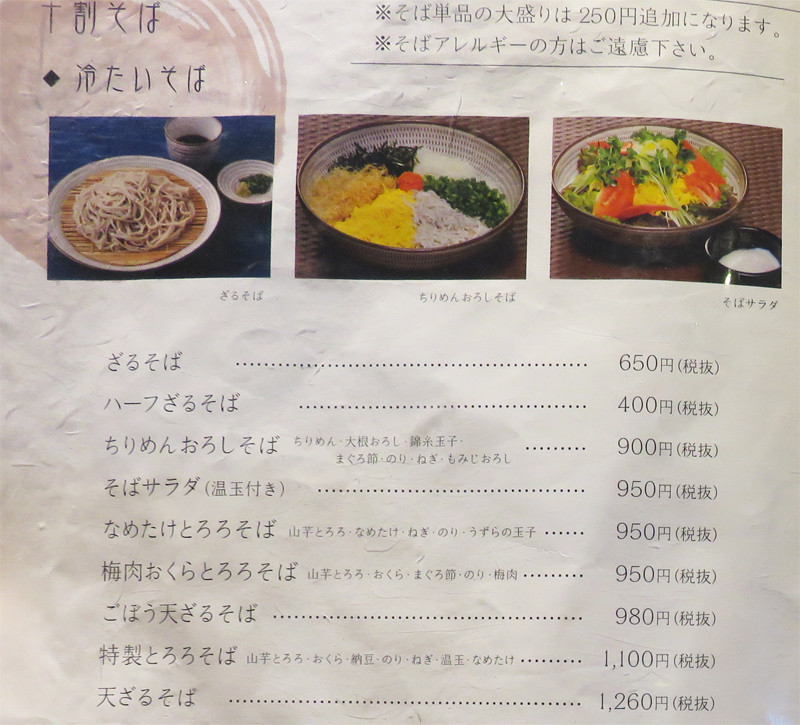 十割そば
※そば単品の大盛りは250円追加になります。
※そばアレルギーの方はご遠慮下さい。
◆ 冷たいそば
ざるそば
ちりめんおろしそば
そばサラダ
ざるそば ………………………………… 650円(税抜)
ハーフざるそば ………………………… 400円(税抜)
ちりめんおろしそば ちりめん・大根おろし・錦糸玉子・
まぐろ節・のり・ねぎ・もみじおろし ……… 900円(税抜)
そばサラダ(温玉付き) ………………………… 950円(税抜)
なめたけとろろそば 山芋とろろ・なめたけ・ねぎ・のり・うずらの玉子 …… 950円(税抜)
梅肉おくらとろろそば 山芋とろろ・おくら・まぐろ節・のり・梅肉 ……… 950円(税抜)
ごぼう天ざるそば …………………………… 980円(税抜)
特製とろろそば 山芋とろろ・おくら・納豆・のり・ねぎ・温玉・なめたけ ……… 1,100円(税抜)
天ざるそば ………………………………… 1,260円(税抜)